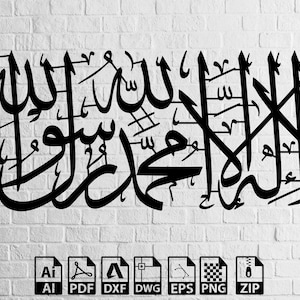 لا إله إلا الله محمد رسول الله
Ai
AI PDF DXF DWG EPS PNG ZIP